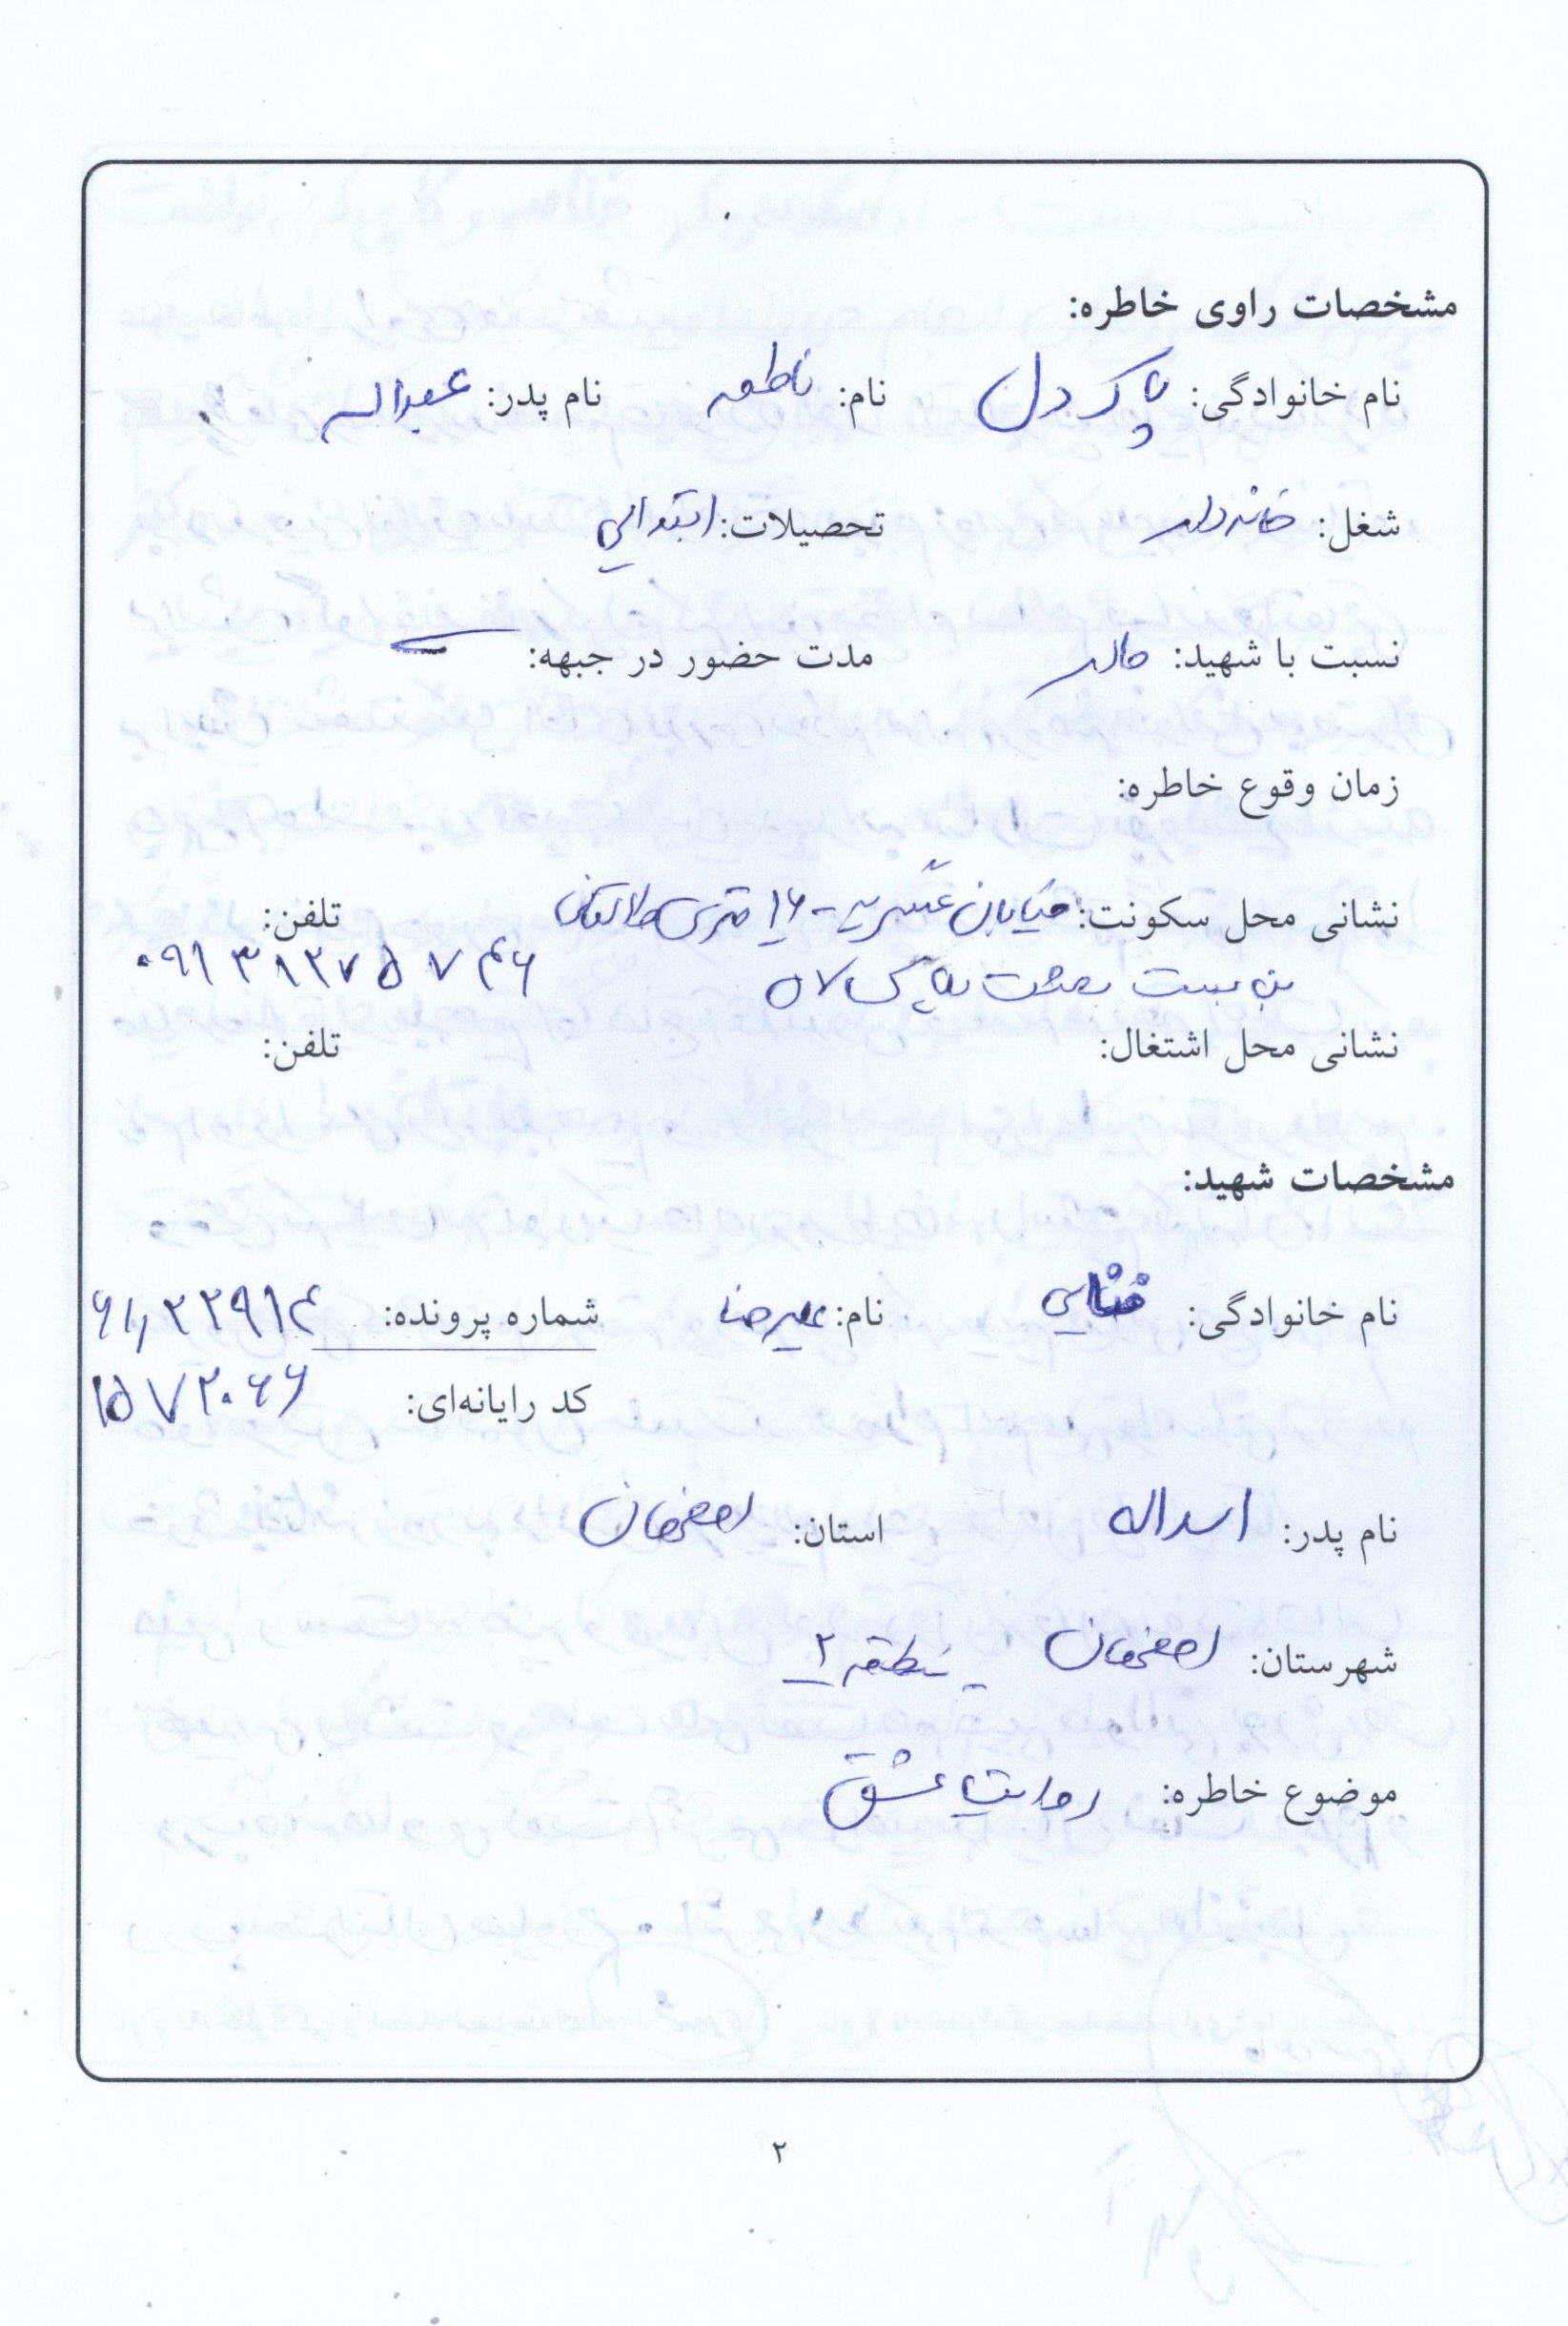 مشخصات راوی خاطره:
نام خانوادگی: پاک دل نام: فاطمه نام پدر: عبداله
شغل: خانه دار تحصیلات: ابتدایی
نسبت با شهید: مادر مدت حضور در جبهه:
زمان وقوع خاطره:
نشانی محل سکونت: خیابان - ۱۶ متری طالقانی تلفن:
بن بست بعثت پلاک ۵۷ ۰۹۱۳۱۳۷۵۷۴۶
نشانی محل اشتغال: تلفن:
مشخصات شهید:
نام خانوادگی: نام: علیرضا شماره پرونده: ۶۱٫۲۲۹۱۴
کد رایانه‌ای: ۱۵۷۲۰۶۶
نام پدر: اسداله استان: اصفهان
شهرستان: اصفهان - منطقه ۲
موضوع خاطره: روایت عشق
۲